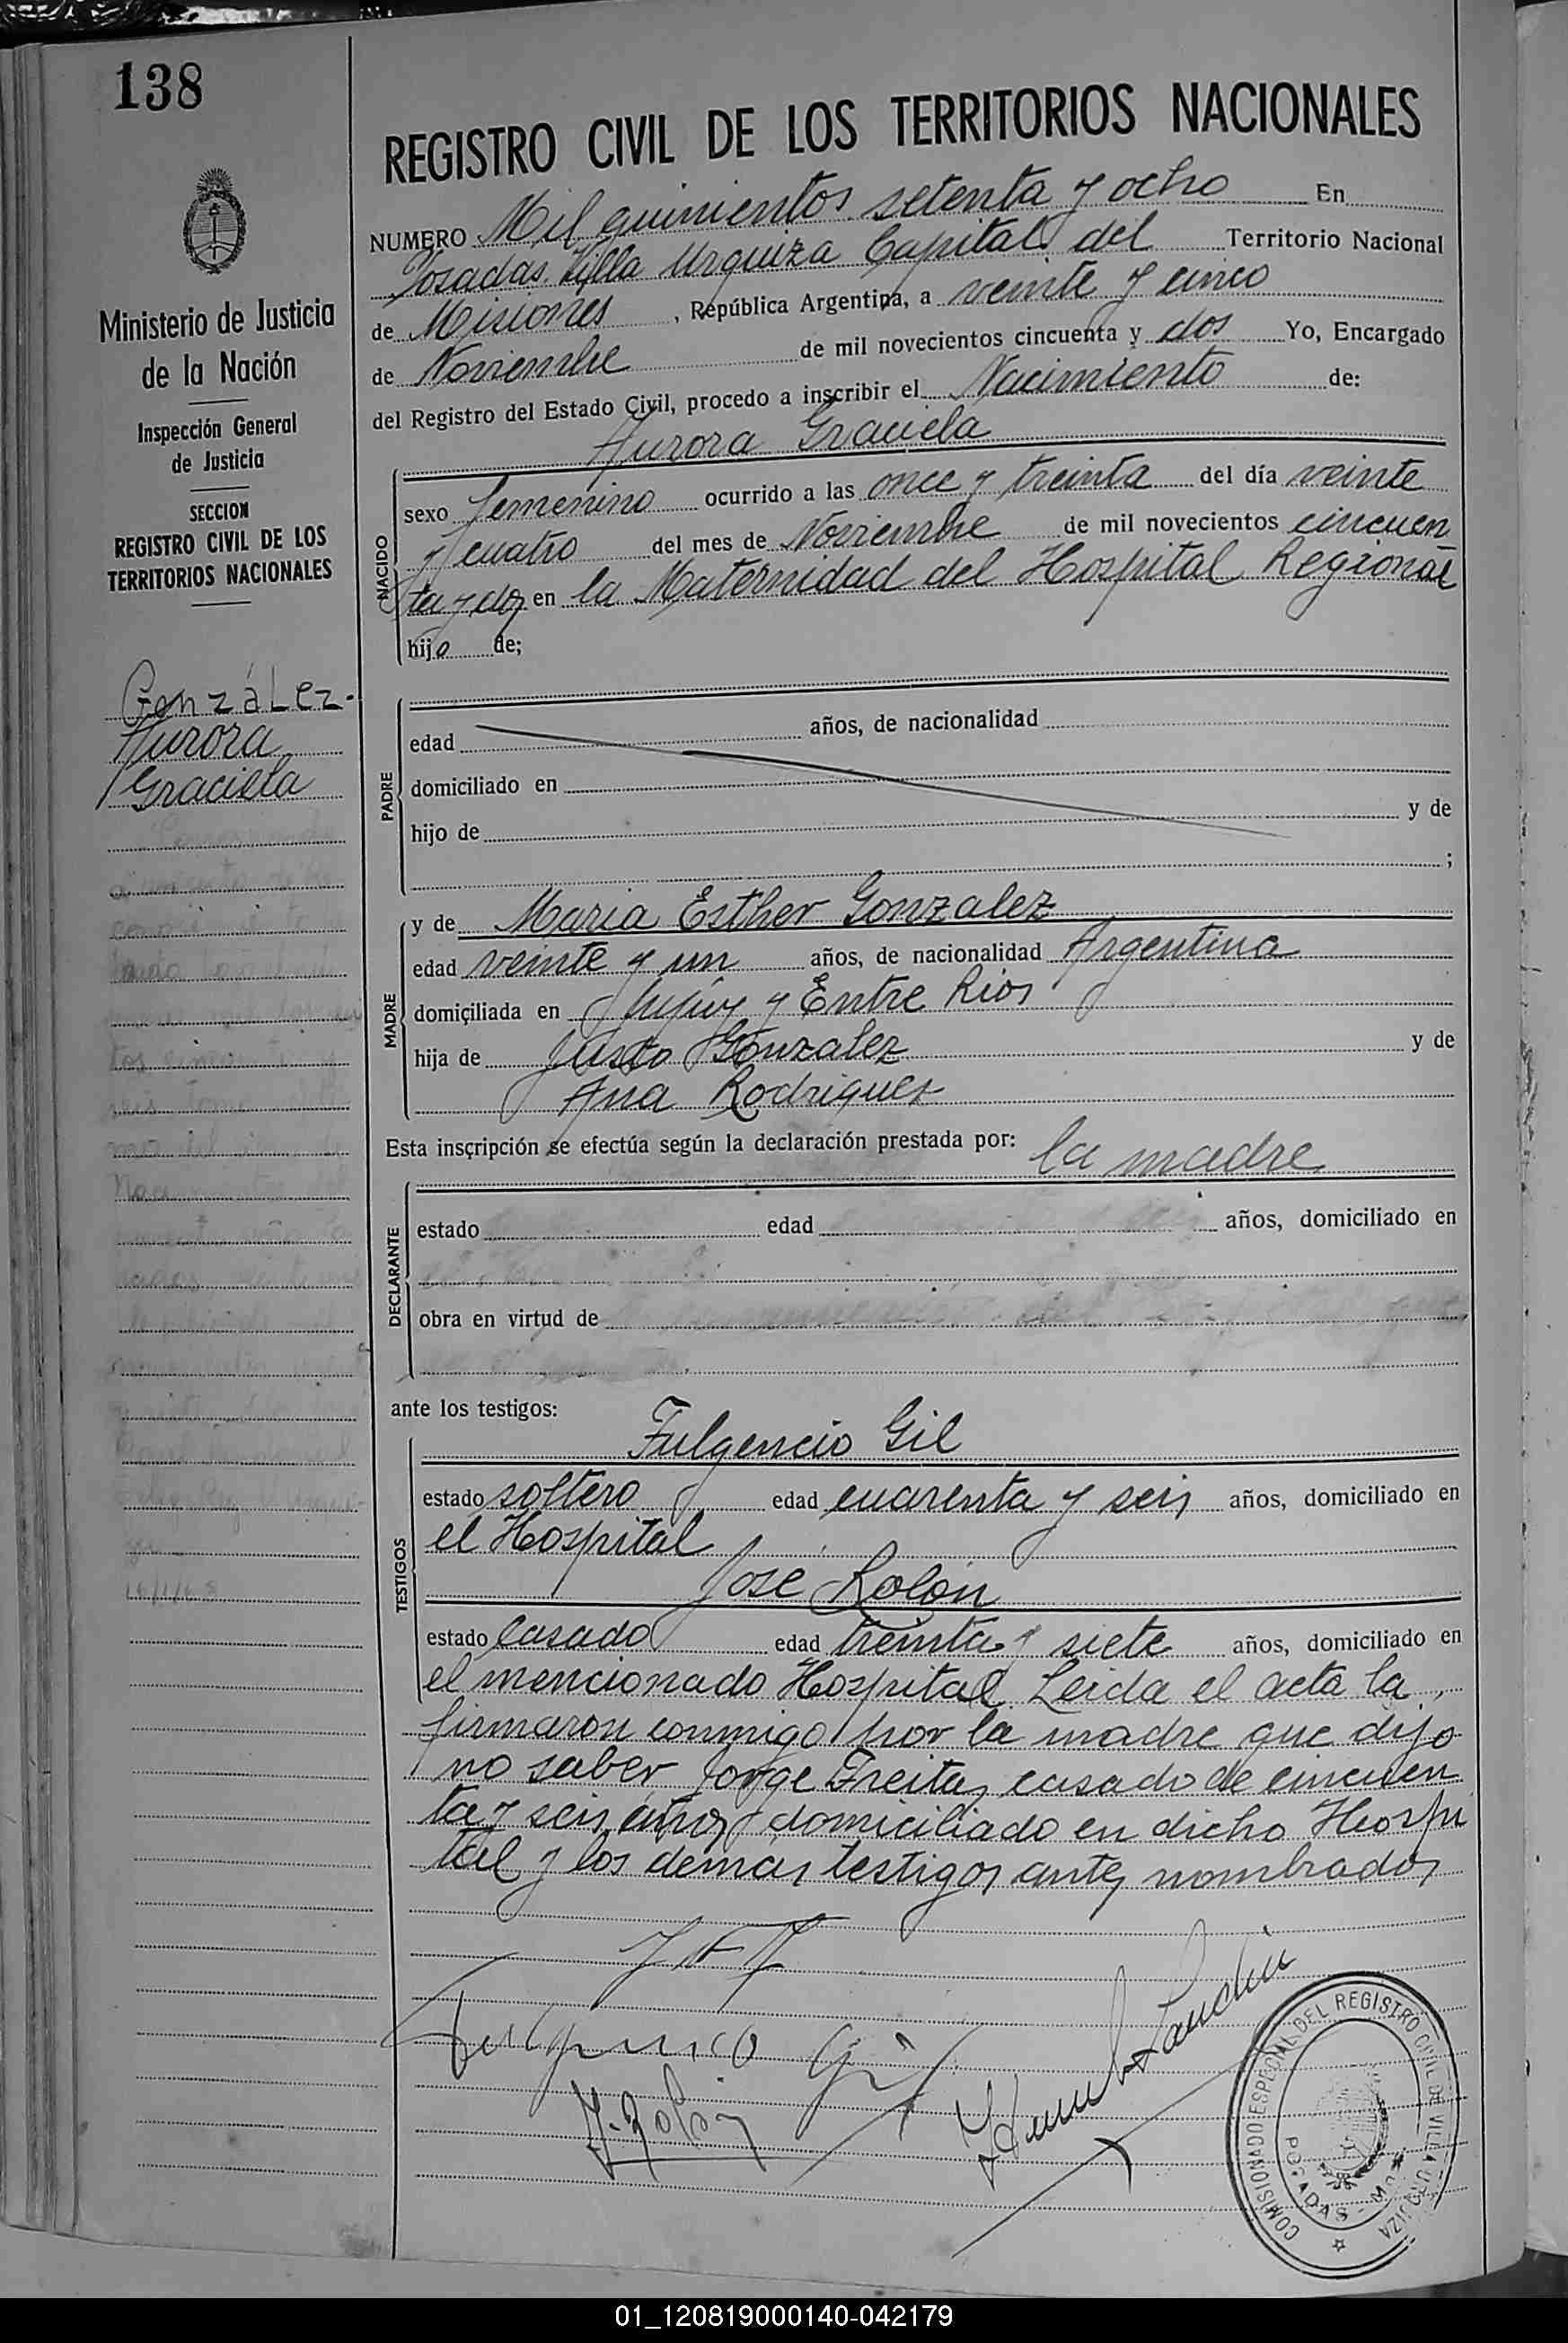 138
REGISTRO CIVIL DE LOS TERRITORIOS NACIONALES
NUMERO Mil quinientos setenta y ocho En
Posadas Villa Urquiza Capital del Territorio Nacional
de Misiones, República Argentina, a veinte y cinco
de Noviembre de mil novecientos cincuenta y dos Yo, Encargado
del Registro del Estado Civil, procedo a inscribir el Nacimiento de:
Aurora Graciela
Ministerio de Justicia
de la Nación
Inspección General
de Justicia
SECCION
REGISTRO CIVIL DE LOS
TERRITORIOS NACIONALES
González.
Aurora
Graciela
NACIDO
sexo femenino ocurrido a las once y treinta del día veinte
y cuatro del mes de Noviembre de mil novecientos cincuen
ta y dos en la Maternidad del Hospital Regional
hija de;
PADRE
edad años, de nacionalidad
domiciliado en
hijo de y de
;
MADRE
y de Maria Esther Gonzalez
edad veinte y un años, de nacionalidad Argentina
domiciliada en Jujuy y Entre Rios
hija de Justo Gonzalez y de
Ana Rodriguez
Esta inscripción se efectúa según la declaración prestada por: la madre
DECLARANTE
estado edad años, domiciliado en
obra en virtud de
ante los testigos:
TESTIGOS
Fulgencio Gil
estado soltero edad cuarenta y seis años, domiciliado en
el Hospital
José Rolón
estado casado edad treinta y siete años, domiciliado en
el mencionado Hospital Leida el acta la
firmaron conmigo por la madre que dijo
no saber Jorge Freitas casado de cincuen
ta y seis años domiciliado en dicho Hospi
tal y los demás testigos antes nombrados
Fulgencio Gil
J. Rolón
COMISIONADO ESPECIAL DEL REGISTRO CIVIL DE VILLA URQUIZA
POSADAS
01_120819000140-042179